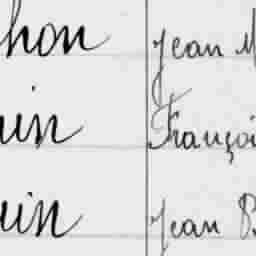 hon Jean M
uin Françoi
uin Jean B